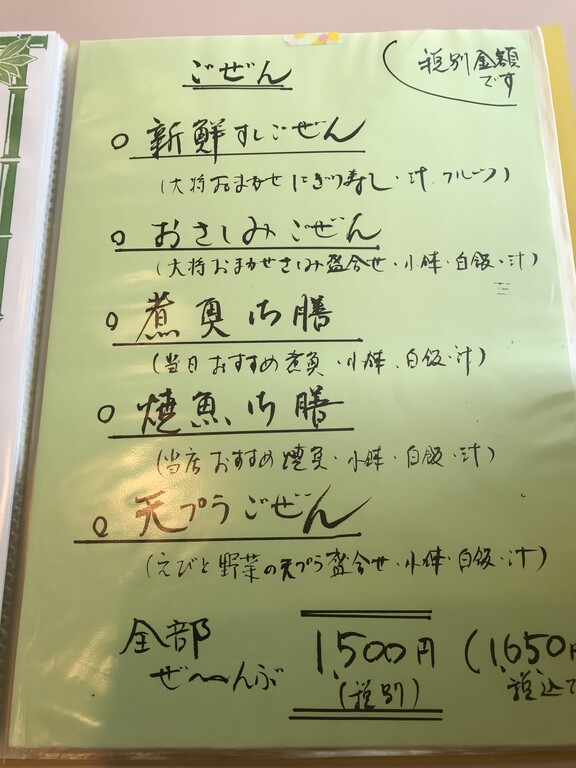 ごぜん
税別金額
です
○ 新鮮すしごぜん
(大将おまかせにぎり寿し・汁、フルーツ)
○ おさしみごぜん
(大将おまかせさしみ盛合せ・小鉢・白飯・汁)
○ 煮魚御膳
(当日おすすめ煮魚・小鉢、白飯・汁)
○ 焼魚御膳
(当店おすすめ焼魚・小鉢・白飯・汁)
○ 天プラごぜん
(えびと野菜の天プラ盛合せ・小鉢・白飯・汁)
全部
ぜ〜んぶ
1,500円
(税別)
(1,650円
税込で